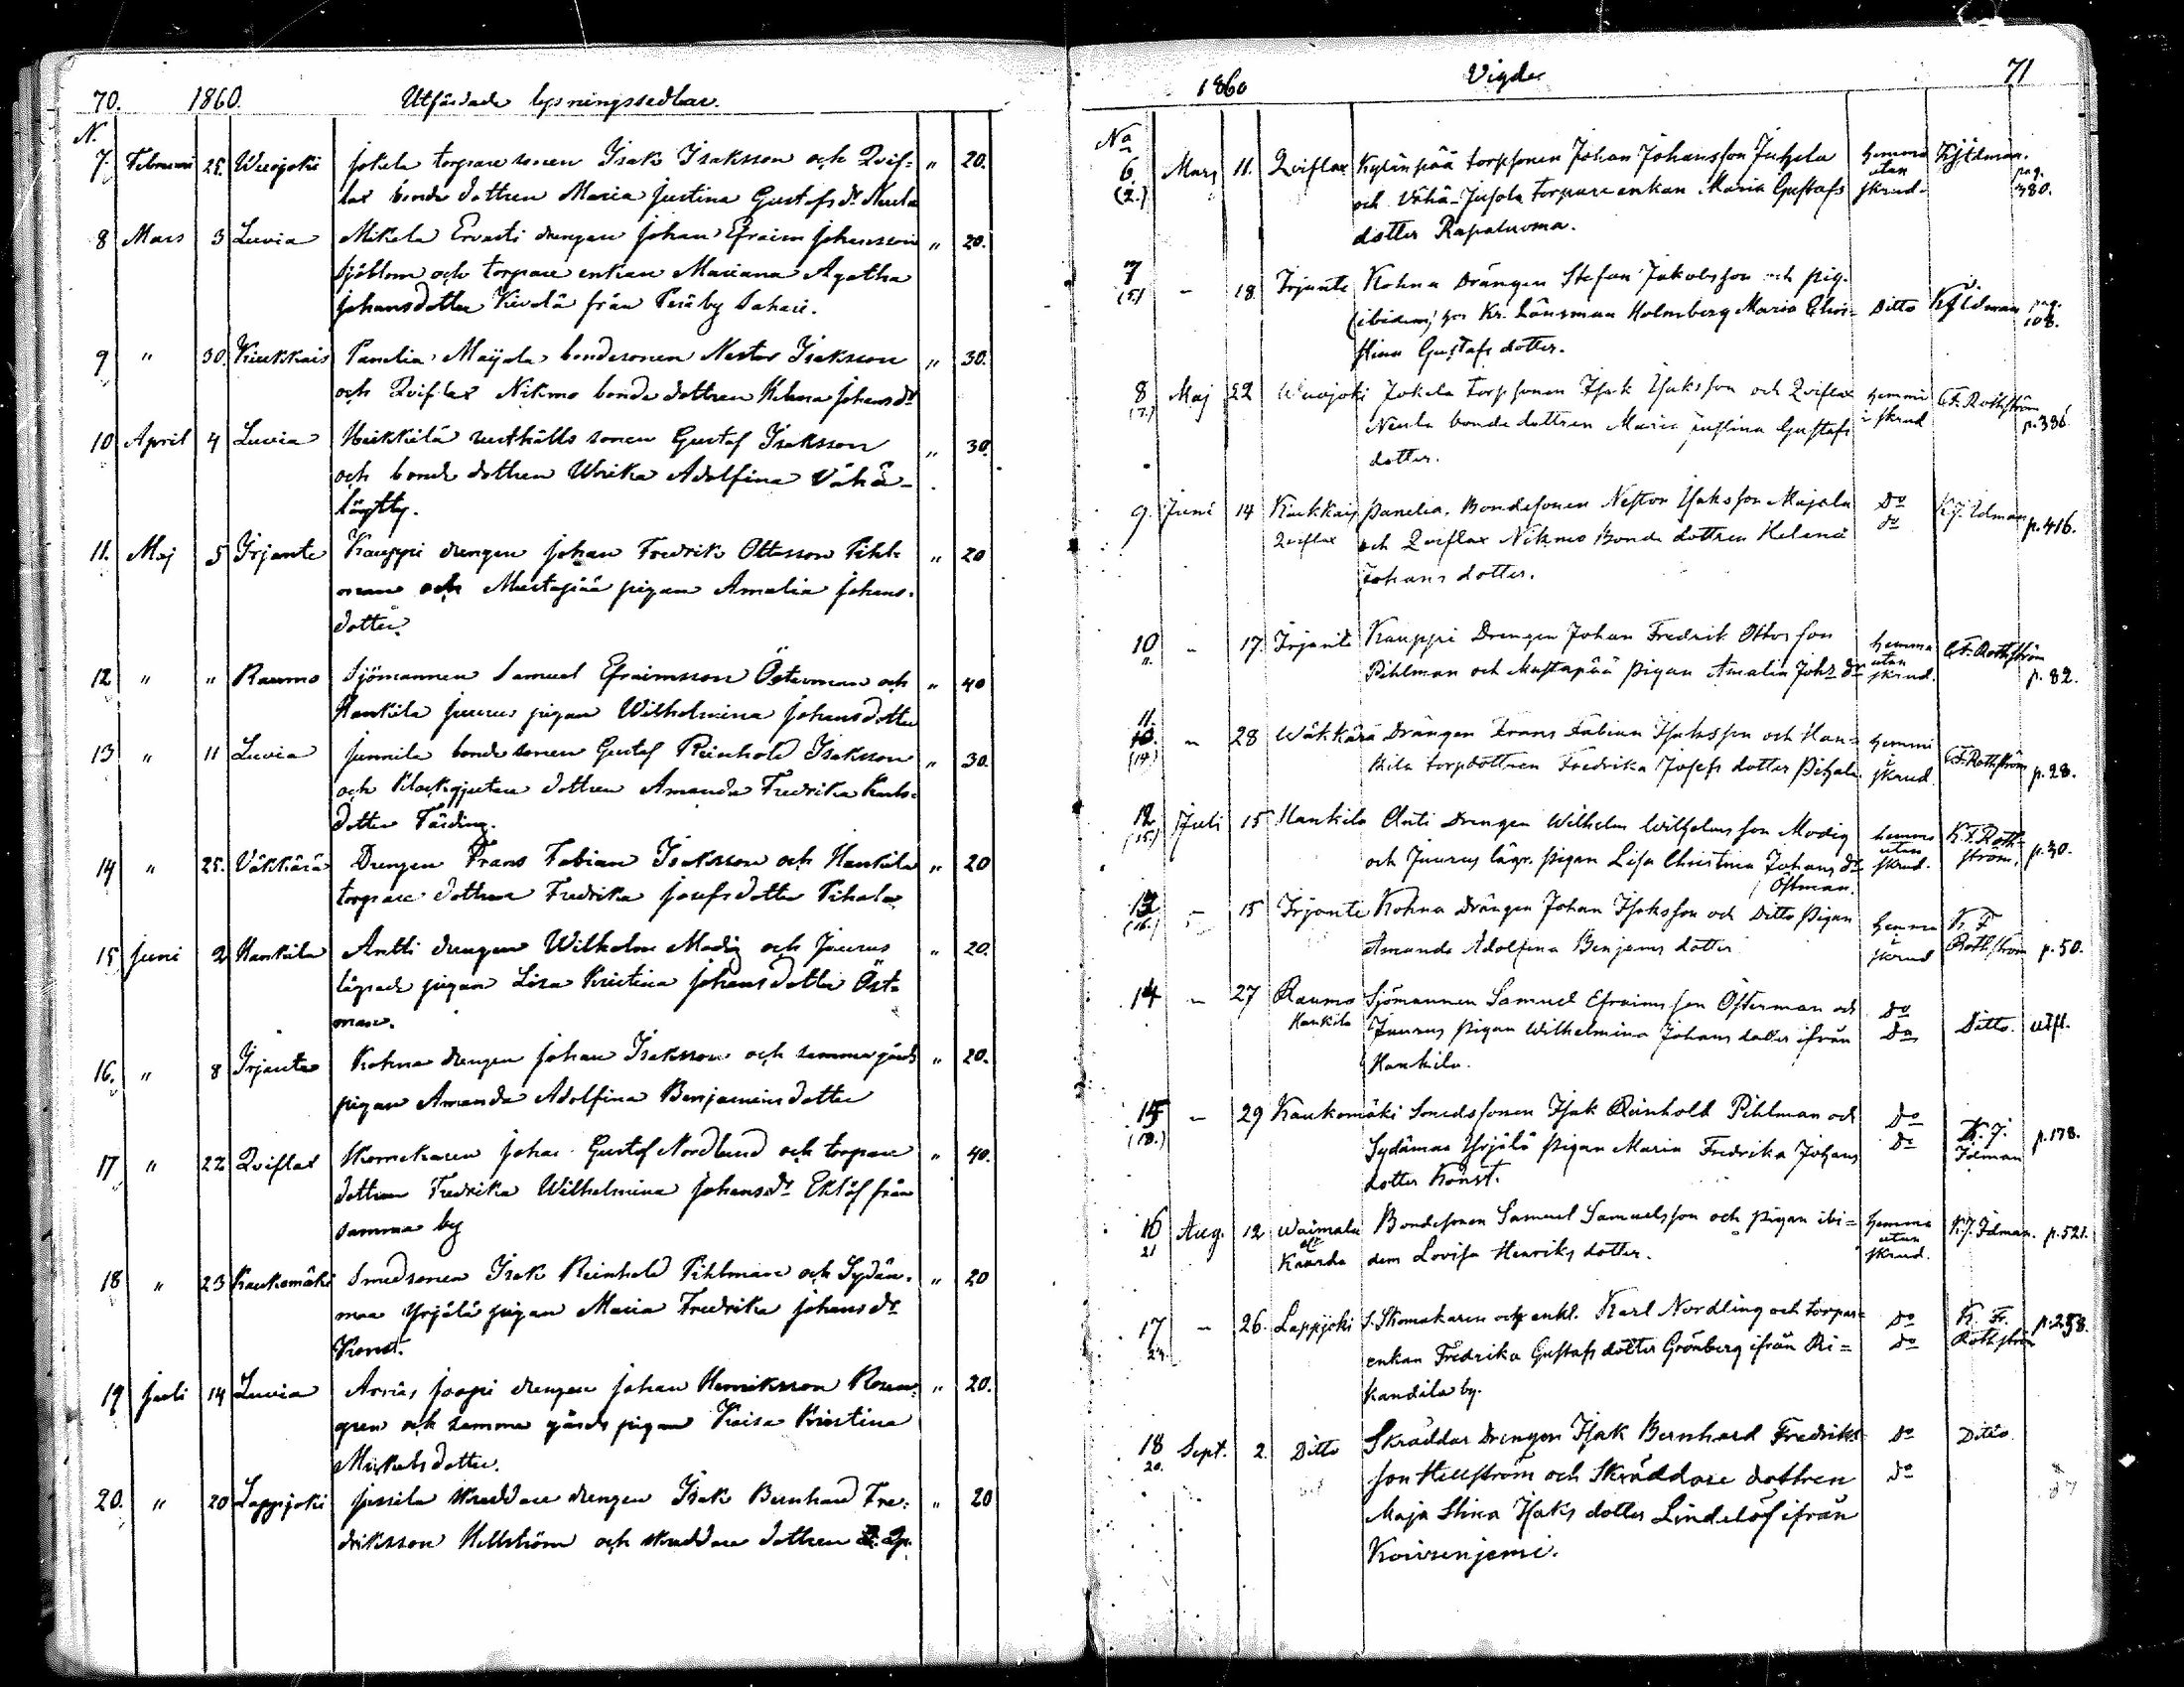 70. 1860. Utfärdade lysningssedlar.
N.
7. Februari 25. Wuojoki Jokela torpare sonen Isak Isaksson och Qvif- " 20.
lax bonde dottren Maria Justina Gustafs dr Neula
8 Mars 3 Luvia Mikola Ervasti drengen Johan Efraim Johansson " 20.
Sjöblom och torpare enkan Mariana Agatha
Johansdotter Kivelä från Peräby Sahari.
9 " 30. Kiukkais Panelia Maijala bondesonen Nestor Isaksson " 30.
och Qviflax Nikmo bonde dottren Helena Johans dr
10 April 4 Luvia Heikkilä rusthålls sonen Gustaf Isaksson " 30.
och bonde dottren Ulrika Adolfina Vähä-
läytty.
11. Maj 5 Irjante Kauppi drengen Johan Fredrik Ottosson Pihl- " 20
man och Mustapää pigan Amalia Johans-
dotter.
12 " " Raumo Sjömannen Samuel Efraimsson Österman och " 40
Hankila Juurus pigan Wilhelmina Johansdotter
13 " 11 Luvia Junnila bonde sonen Gustaf Reinhold Isaksson " 30.
och Klockgjutare dottren Amanda Fredrika Karls-
dotter Färding.
14 " 25. Väkkärä Drengen Frans Fabian Isaksson och Hankila " 20
torpare dottren Fredrika Josefsdotter Pihala
15 Juni 2 Hankila Antti drengen Wilhelm Modig och Juurus " 20.
lägrade pigan Lisa Kristina Johansdotter Öst-
man.
16. " 8 Irjante Kohna drengen Johan Isaksson och samma gårds " 20.
pigan Amanda Adolfina Benjaminsdotter
17 " 22 Qviflax Skomakaren Johan Gustaf Nordlund och torpare " 40.
dottren Fredrika Wilhelmina Johansdr Eklöf från
samma by
18 " 23 Kaukomäki Smedsonen Isak Reinhold Pihlman och Sydän- " 20
maa Yrjälä pigan Maria Fredrika Johans dr
Konst.
19 Juli 14 Luvia Arviis Jaapi drengen Johan Henriksson Rosen- " 20.
gren och samma gårds pigan Kaisa Kristina
Mickelsdotter.
20. " 20 Lappjoki Jussila skreddare drengen Isak Bernhard Fre- " 20
driksson Hellström och skreddare dottren
1860 Vigde 71
No
6. (2.) Mars 11. Qviflax Kylänpää torpsonen Johan Johansson Juhola hemma utan skrud. KJIdman. pag. 380.
och Vähä-Jusola torpare enkan Maria Gustafs
dotter Rapaluoma.
7 (5.) - 18. Irjante Kohna Drängen Stefan Jakobsson och pig. Ditto KJIdman pag. 108.
(ibidem) hos Kr. Länsman Holmberg Maria Chri-
stina Gustafs dotter.
8 (7.) Maj 22 Wuojoki Jokela torpsonen Isak Isaksson och Qviflax hemma i skrud C.F. Rothström p. 336
Neula bonde dottren Maria Justina Gustafs
dotter.
9. Juni 14 Kiukkais Panelia. Bondesonen Nestor Isaksson Majala Do K.J. Idman p. 416.
Qviflax och Qviflax Nikmo Bonde dottren Helena do
Johans dotter.
10 11. - 17. Irjante Kauppi Drengen Johan Fredrik Ottosson hemma utan skrud. C.F. Rothström p. 82.
Pihlman och Mustapää Pigan Amalia Johs dr
11. 10. (14.) - 28 Wäkkärä Drängen Frans Fabian Isaksson och Han- hemma i skrud. C.F. Rothström p. 28.
kila torpdottren Fredrika Josefs dotter Pihala
12 (15.) Juli 15 Hankila Anti Drengen Wilhelm Wilhelmsson Modig hemma utan skrud. K.F. Roth-ström. p. 30.
och Juurus lägr. pigan Lisa Christina Johans dr
Östman.
13 (16.) - 15 Irjante Kohna Drängen Johan Isaksson och Ditto Pigan hemma i skrud K. F Rothström p. 50.
Amanda Adolfina Benjams dotter
14 - 27 Raumo Sjömannen Samuel Efraimsson Österman och Do Ditto. utfl.
Hankila Juurus Pigan Wilhelmina Johans dotter ifrån Do
Hankila.
15 (18.) - 29 Kaukomäki Smedssonen Isak Reinhold Pihlman och Do K.J. Idman p. 178.
Sydämaa Yrjälä Pigan Maria Fredrika Johans Do
dotter Konst.
16 21 Aug. 12 Waimala Bondesonen Samuel Samuelsson och Pigan ibi- hemma utan skrud. K.J. Idman. p. 521.
Kaarda dem Lovisa Henriks dotter.
17 - 26. Lappjoki S. Skomakaren och enkl. Karl Nordling och torpar- Do K. Fr. Rothström p. 258.
enkan Fredrika Gustafs dotter Grönberg ifrån Ri- Do
kandila by.
18 20. Sept. 2. Ditto Skräddar Drengen Isak Bernhard Fredriks Do Ditto
son Hellström och Skräddare dottren do
Maja Stina Isaks dotter Lindelöf ifrån
Koivuniemi.